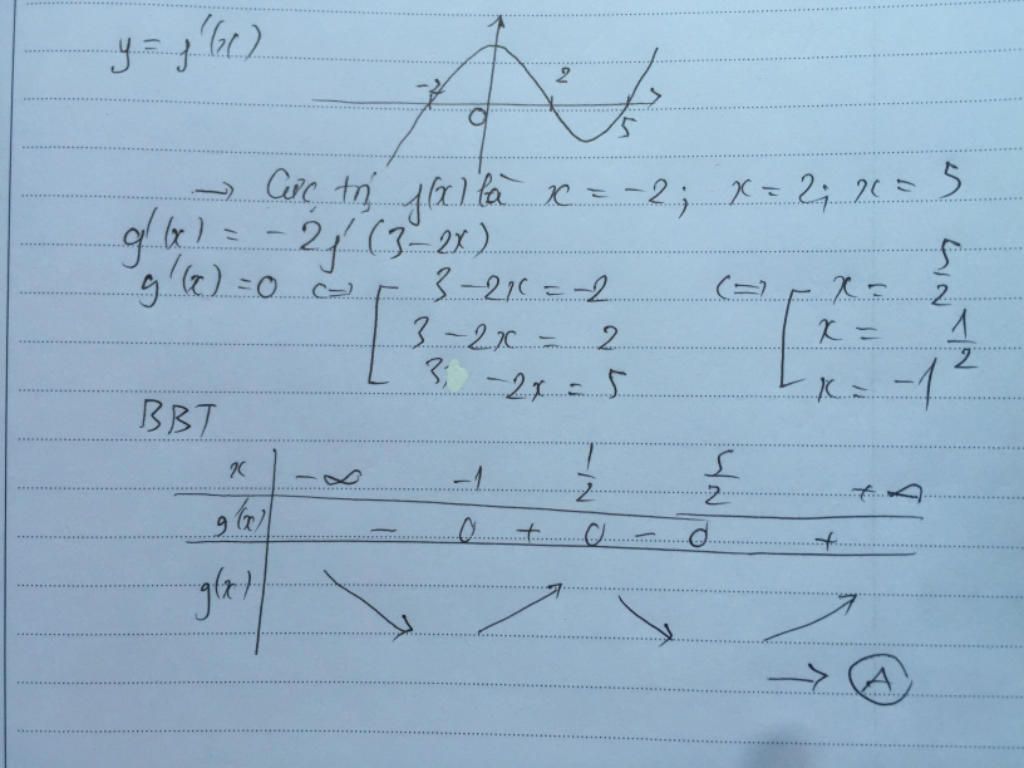 y = f'(x)
-2 O 2 5
→ Cực trị f(x) là x = -2; x = 2; x = 5
g'(x) = -2f'(3-2x)
g'(x) = 0 <=> [ 3 - 2x = -2 <=> [ x = 5/2
3 - 2x = 2 x = 1/2
3 - 2x = 5 x = -1
BBT
x -∞ -1 1/2 5/2 +∞
g'(x) - 0 + 0 - 0 +
g(x) ↘ ↗ ↘ ↗
→ A